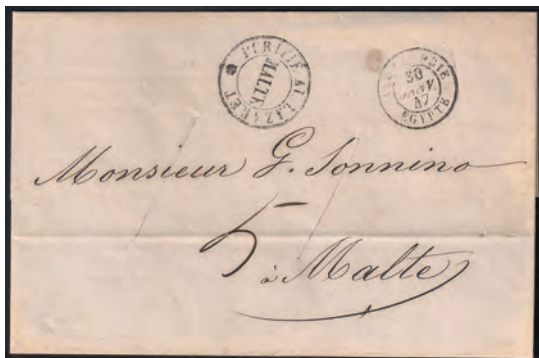 PURIFIÉ AU LAZARET
MALTE
ALEXANDRIE
30
JANV.
47
EGYPTE
Monsieur G. Sonnino
5
à Malte